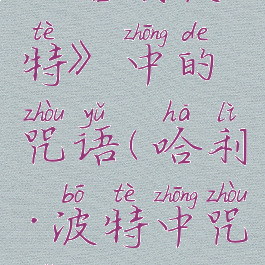 tè zhōng de
特》中的
zhòu yǔ hā lì
咒语(哈利
bō tè zhōng zhòu
·波特中咒